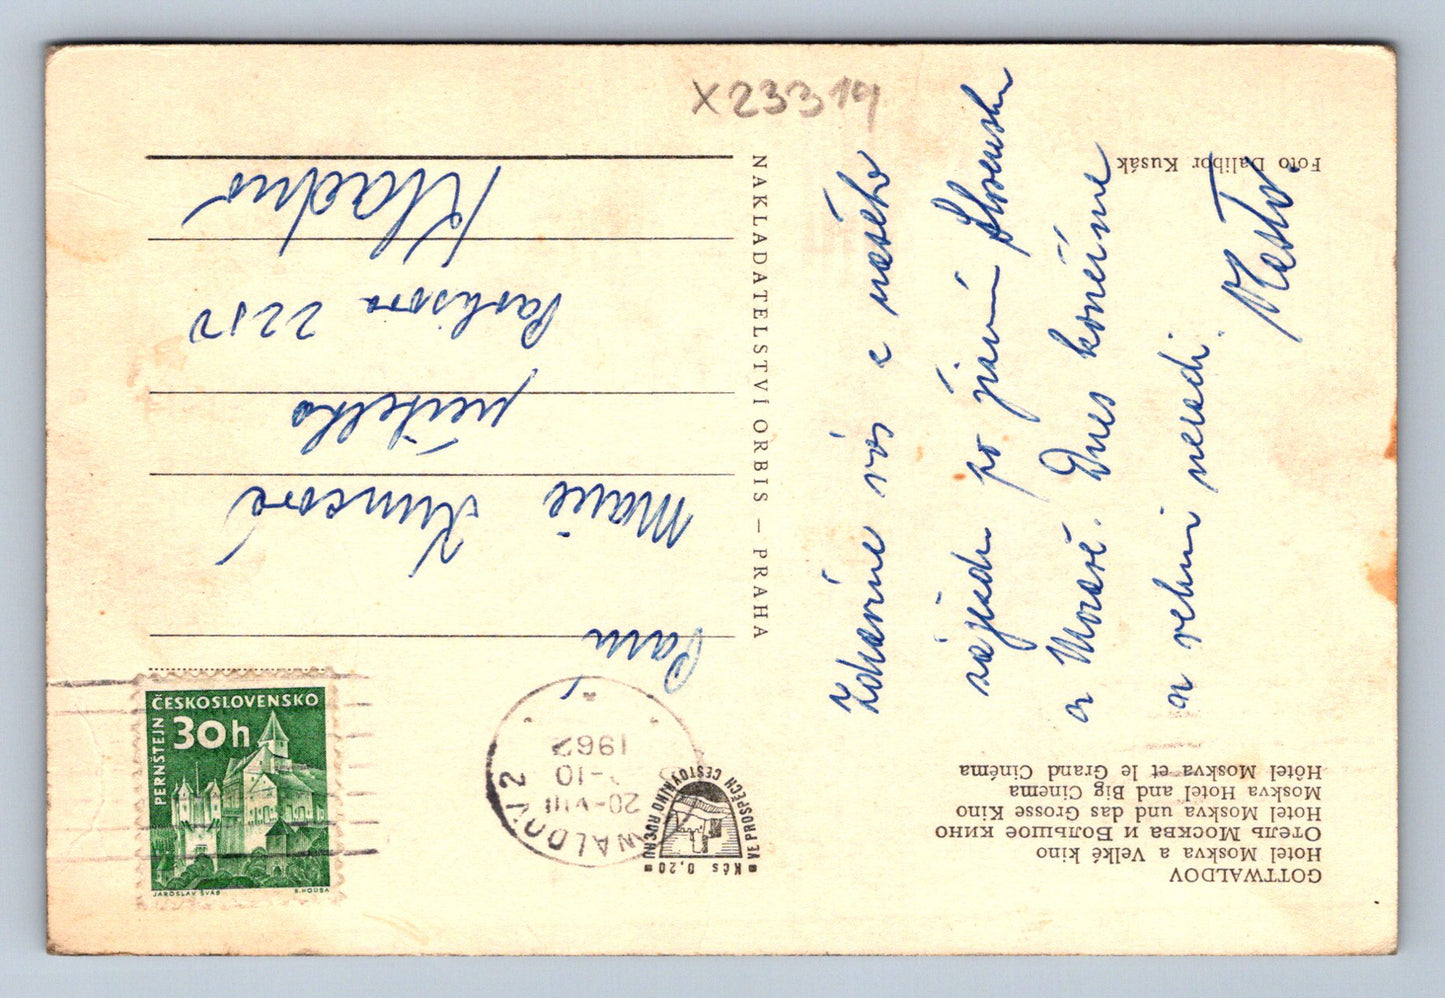 GOTTWALDOV
Hotel Moskva a Velké kino
Отель Москва и Большое кино
Hotel Moskva und das Grosse Kino
Moskva Hotel and Big Cinema
Hôtel Moskva et le Grand Cinéma
Foto Dalibor Kusák
vás z našeho
zájezdu po jižním Slovensku
a Moravě. Dnes končíme
a velmi neradi.
NAKLADATELSTVÍ ORBIS — PRAHA
Kčs 0,20
VE PROSPĚCH CESTOVNÍHO RUCHU
WALDOV 2
20-VIII
-10
1962
Paní
Marie
učitelka
Kladno
ČESKOSLOVENSKO
30h
PERNŠTEJN
JAROSLAV ŠVÁB
B. HOUSA
X23319